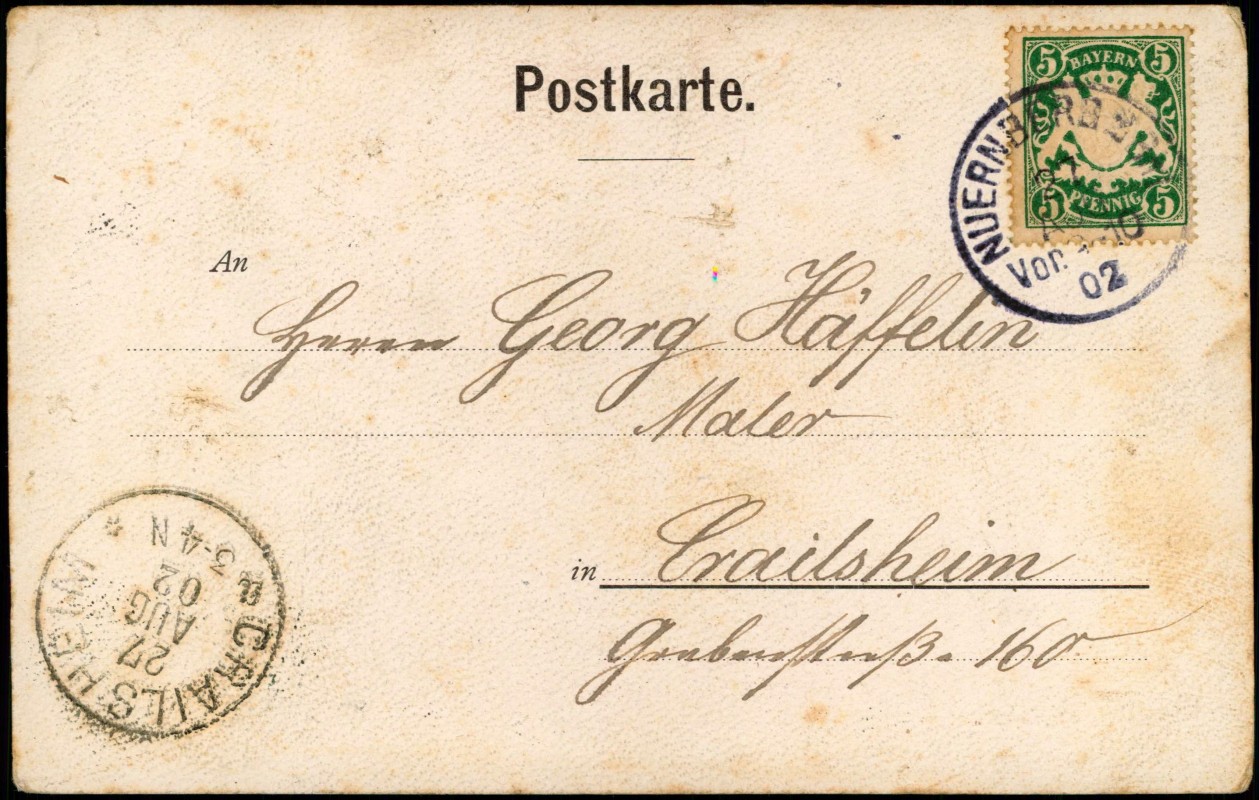 Postkarte.
5 BAYERN 5
5 PFENNIG 5
NUERNBERG 2
27
Vor. 10
02
An
Herrn Georg Häffelin
Maler
in Crailsheim
Grabenstraße 160
CRAILSHEIM
27
AUG
02
3-4 N